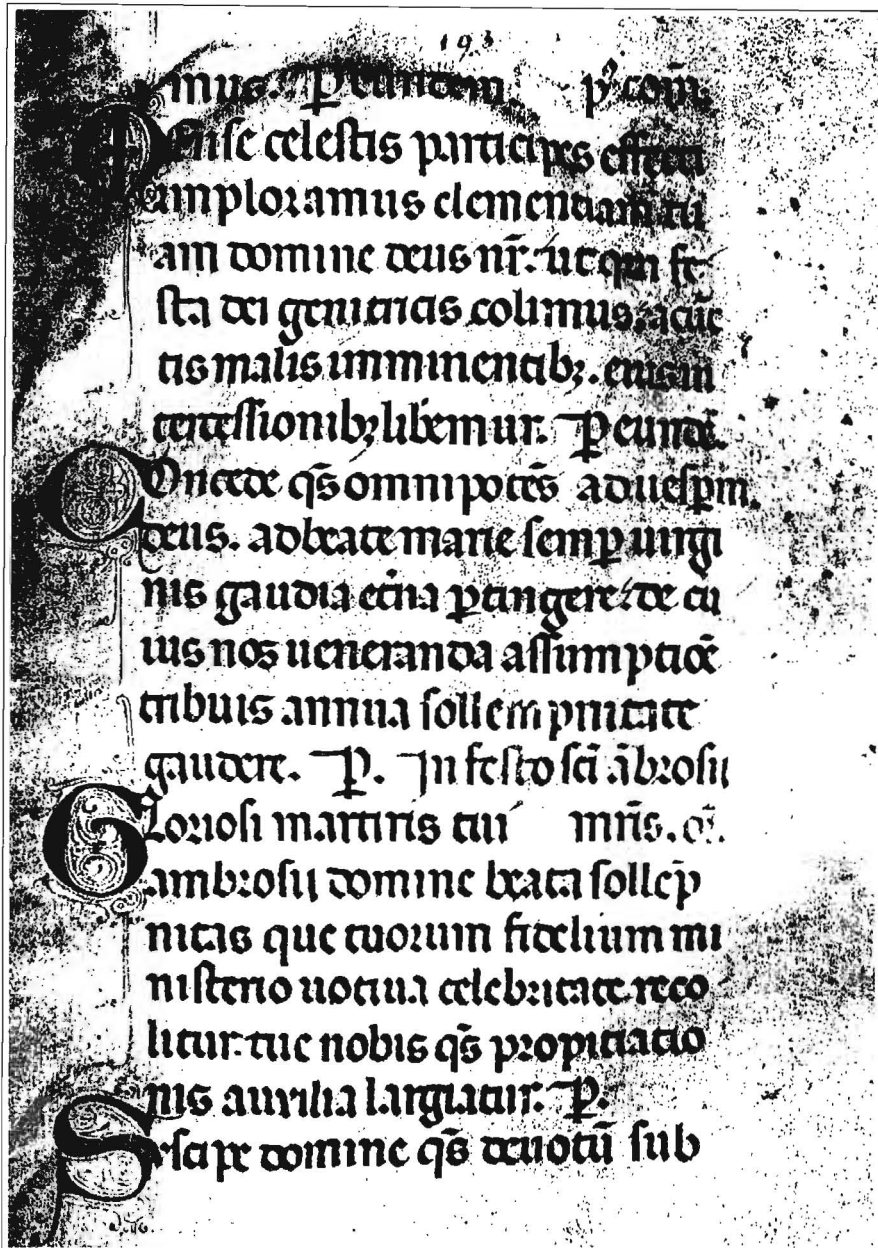 193
mus. P eundem. p9 com̄.
Mense celestis participes effecti
imploramus clementiam tu
am domine deus nr̄. ut qui fe
sta dei genitricis colimus. a cūc
tis malis imminentibꝫ. eius in
tercessionibꝫ lib̄emur. P eundē.
Concede q̄s omnipotēs ad uesꝑm.
deus. ad beate marie semꝑ uirgi
nis gaudia et̄na ꝑtingere. de cu
ius nos ueneranda assumptiōe
tribuis annua sollempnitate
gaudere. P. In festo sc̄i ābrosii
Gloriosi martiris tui mr̄is. or̄.
ambrosii domine beata sollēp
nitas que tuorum fidelium mi
nisterio uotiua celebritate reco
litur. tue nobis q̄s propiciatio
nis auxilia largiatur. P.
Suscipe domine q̄s deuotū sub